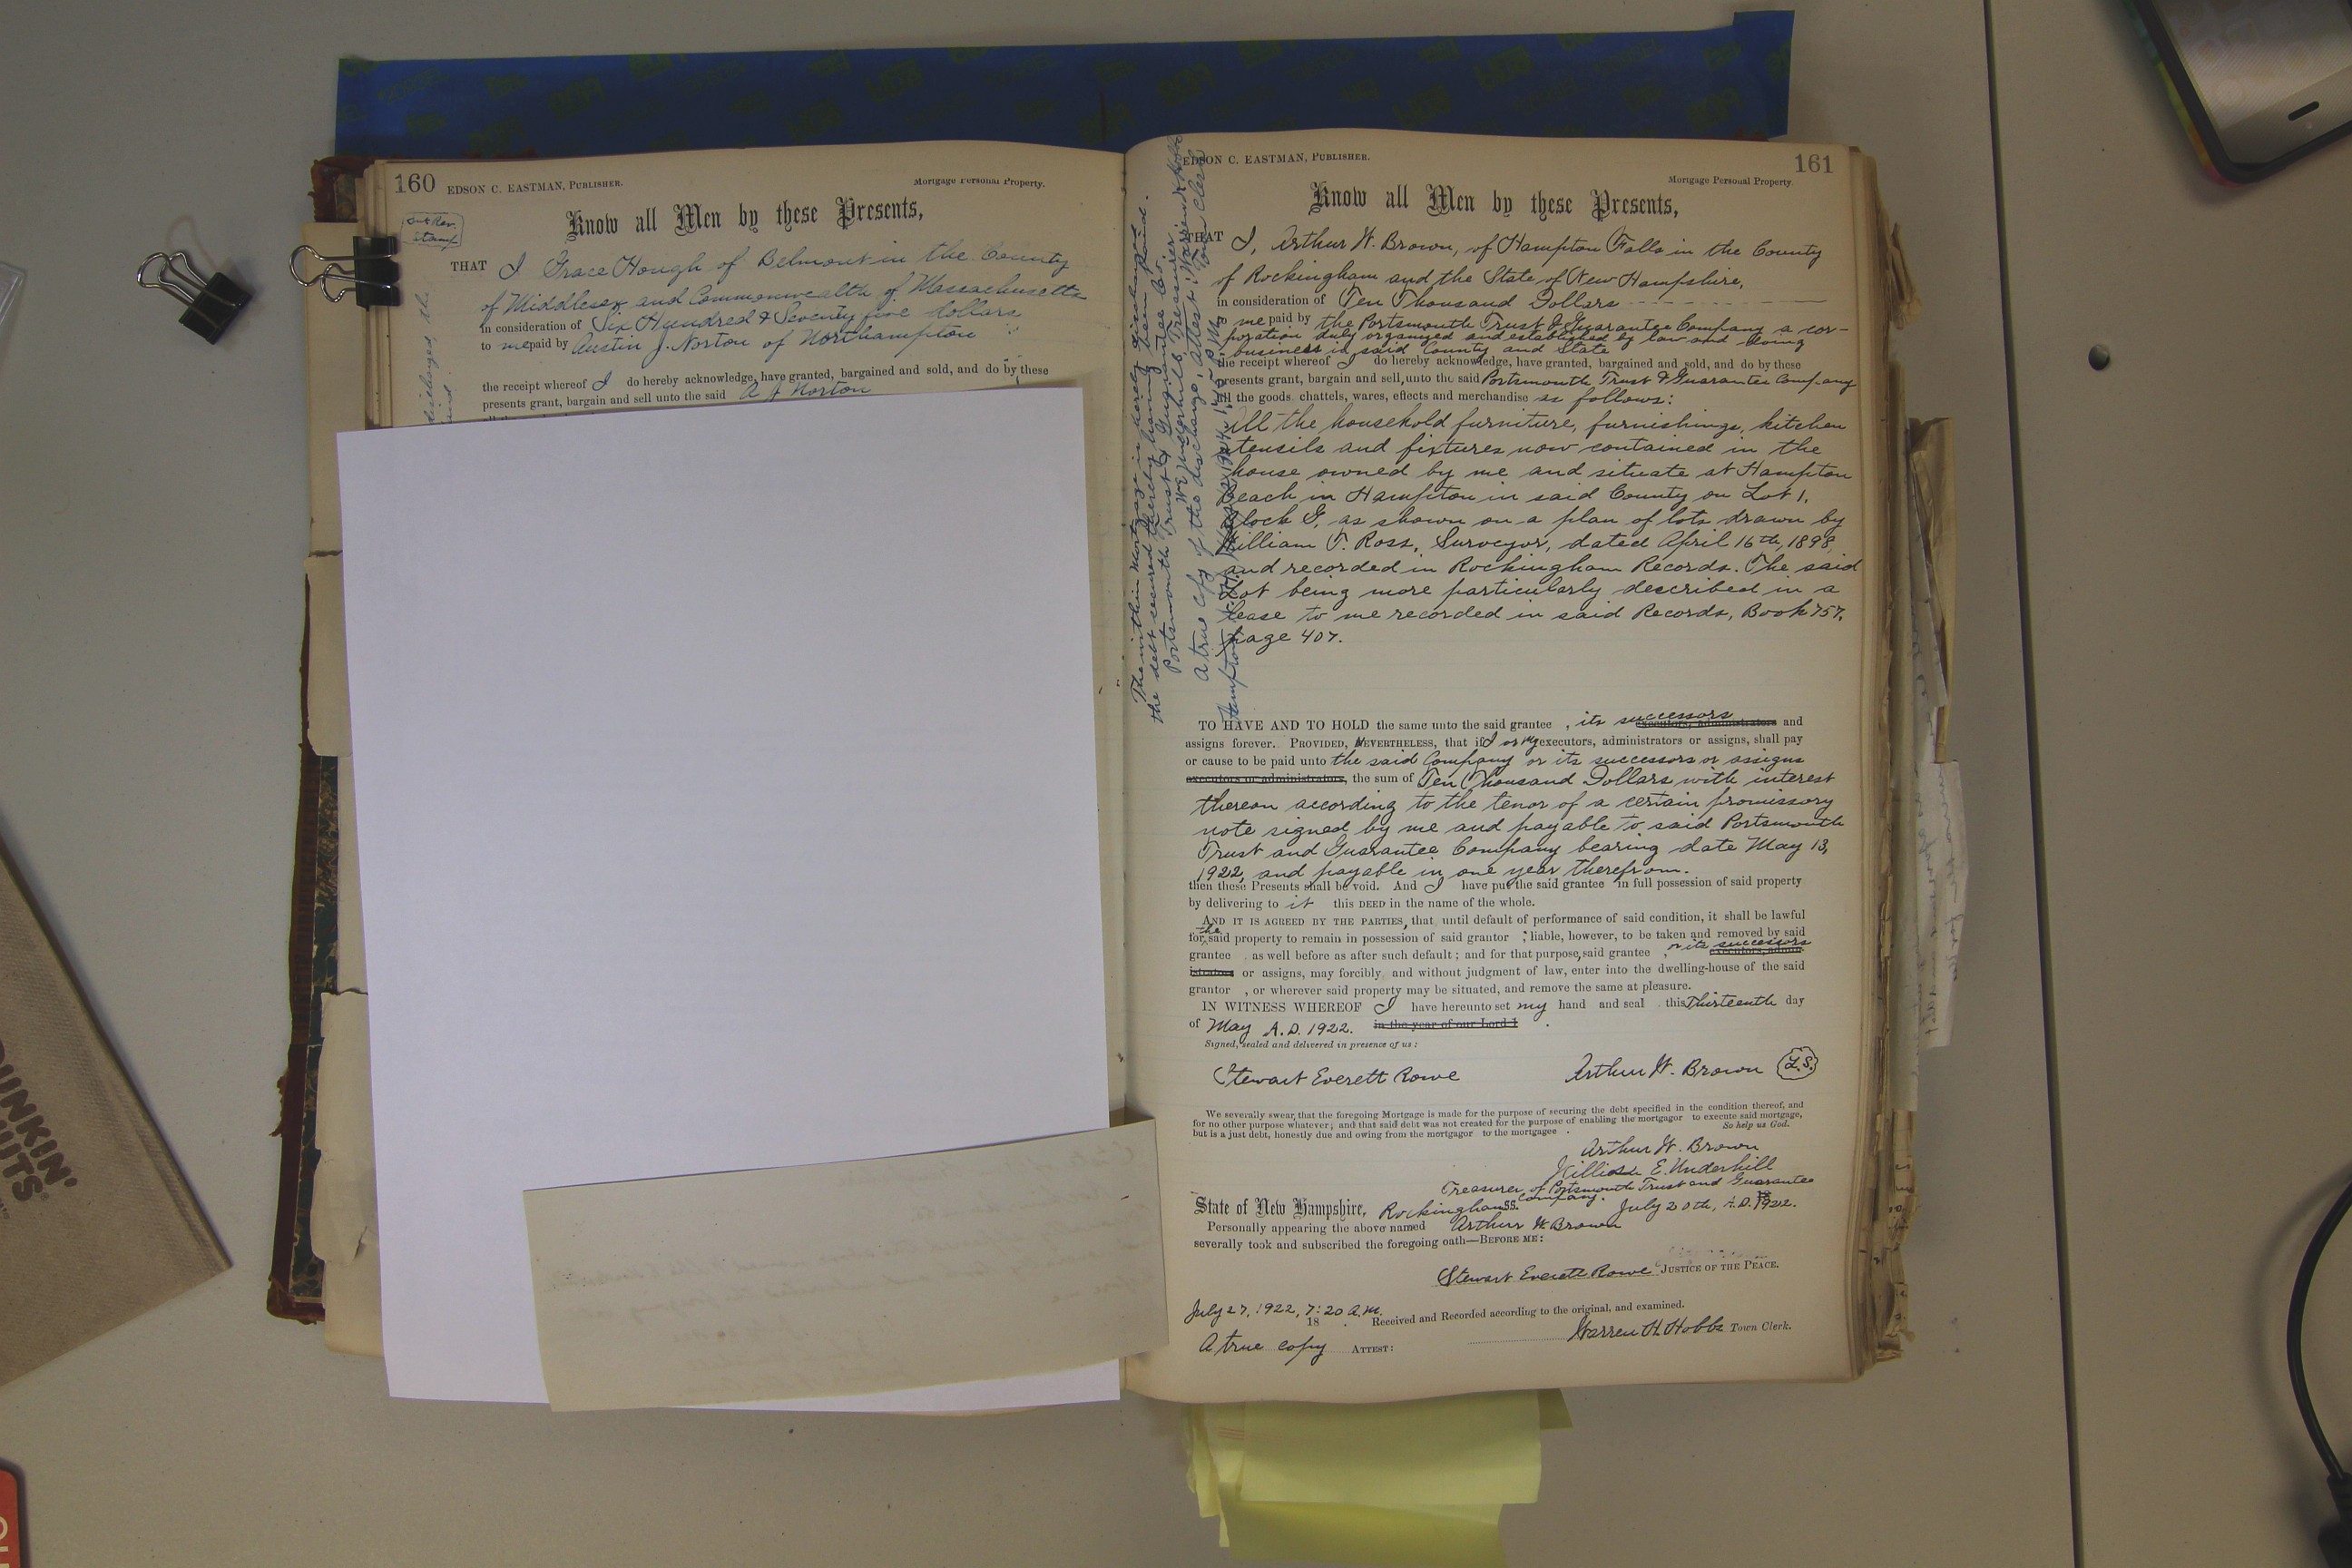 160 EDSON C. EASTMAN, PUBLISHER.
Mortgage Personal Property.
Know all Men by these Presents,
THAT I Grace Hough of Belmont in the County
of Middlesex and Commonwealth of Massachusetts
in consideration of Six Hundred & Seventy five dollars
to me paid by Austin J. Norton of Northampton
the receipt whereof I do hereby acknowledge, have granted, bargained and sold, and do by these
presents grant, bargain and sell unto the said A J Norton
EDSON C. EASTMAN, PUBLISHER.
161
Mortgage Personal Property.
Know all Men by these Presents,
THAT I, Arthur W. Brown, of Hampton Falls in the County
of Rockingham and the State of New Hampshire,
in consideration of Ten Thousand Dollars
me paid by the Portsmouth Trust & Guarantee Company a cor-
poration duly organized and established by law and doing
business in said County and State
the receipt whereof I do hereby acknowledge, have granted, bargained and sold, and do by these
presents grant, bargain and sell, unto the said Portsmouth Trust & Guarantee Company
all the goods, chattels, wares, effects and merchandise as follows:
All the household furniture, furnishings, kitchen
utensils and fixtures now contained in the
house owned by me and situate at Hampton
Beach in Hampton in said County on Lot 1,
Block G, as shown on a plan of lots drawn by
William T. Ross, Surveyor, dated April 16th, 1898,
and recorded in Rockingham Records. The said
Lot being more particularly described in a
lease to me recorded in said Records, Book 757,
page 407.
TO HAVE AND TO HOLD the same unto the said grantee , its successors executors, administrators and
assigns forever. PROVIDED, NEVERTHELESS, that if I or my executors, administrators or assigns, shall pay
or cause to be paid unto the said Company or its successors or assigns
executors or administrators, the sum of Ten Thousand Dollars with interest
thereon according to the tenor of a certain promissory
note signed by me and payable to said Portsmouth
Trust and Guarantee Company bearing date May 13,
1922, and payable in one year therefrom.
then these Presents shall be void. And I have put the said grantee in full possession of said property
by delivering to it this DEED in the name of the whole.
AND IT IS AGREED BY THE PARTIES, that until default of performance of said condition, it shall be lawful
for the said property to remain in possession of said grantor ; liable, however, to be taken and removed by said
grantee as well before as after such default ; and for that purpose, said grantee , or its successors executors, admin-
istrators or assigns, may forcibly and without judgment of law, enter into the dwelling-house of the said
grantor , or wherever said property may be situated, and remove the same at pleasure.
IN WITNESS WHEREOF I have hereunto set my hand and seal this Thirteenth day
of May A.D. 1922. in the year of our Lord 1 .
Signed, sealed and delivered in presence of us :
Stewart Everett Rowe Arthur W. Brown L.S.
We severally swear, that the foregoing Mortgage is made for the purpose of securing the debt specified in the condition thereof, and
for no other purpose whatever ; and that said debt was not created for the purpose of enabling the mortgagor to execute said mortgage,
but is a just debt, honestly due and owing from the mortgagor to the mortgagee . So help us God.
Arthur W. Brown
William E. Underhill
Treasurer of Portsmouth Trust and Guarantee
Company.
State of New Hampshire, Rockingham SS. July 20th, A.D. 1922.
Personally appearing the above named Arthur W. Brown
severally took and subscribed the foregoing oath—BEFORE ME:
Stewart Everett Rowe JUSTICE OF THE PEACE.
July 27, 1922, 7:20 A.M.
18 . Received and Recorded according to the original, and examined.
A true copy ATTEST: Warren H. Hobbs Town Clerk.
The within mortgage is hereby discharged.
the debt secured thereby having been paid.
Portsmouth Trust & Guarantee Co.
W E Underhill Treasurer.
A true copy of the discharge, attest: Warren H Hobbs
Town Clerk